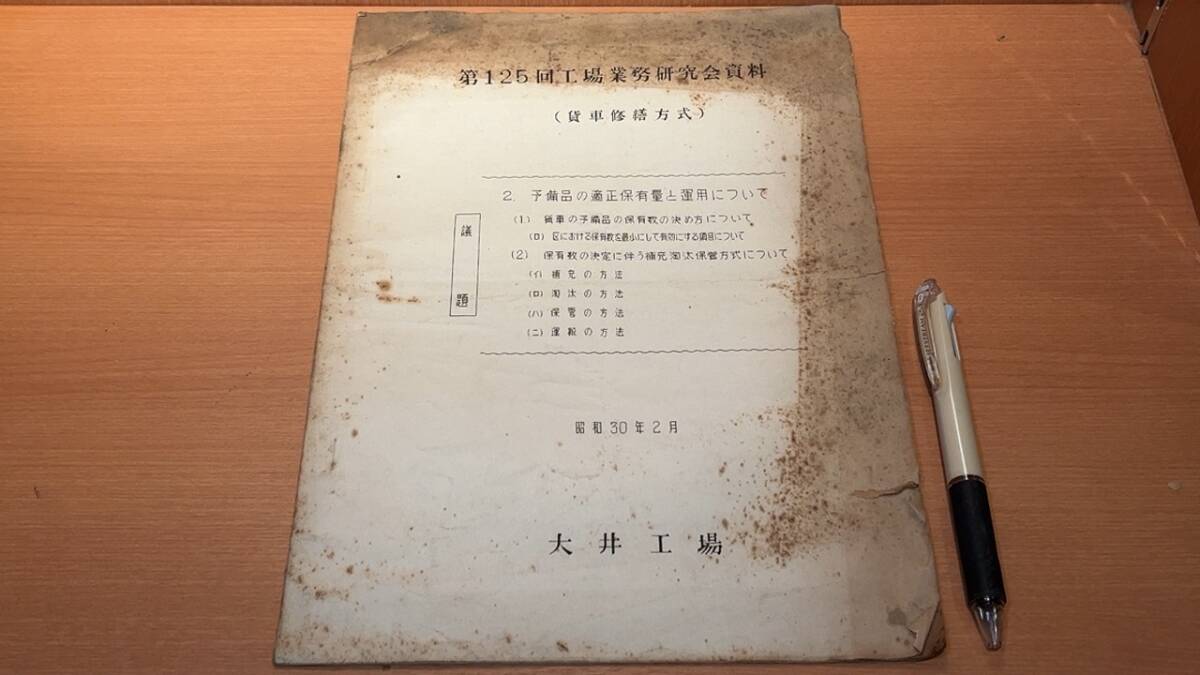 第125回工場業労研究会資料
(貨車修繕方式)
議題
2. 予備品の適正保有量と運用について
(1) 貨車の予備品の保有数の決め方について
(ロ) 区における保有数を最小にして有効にする項目について
(2) 保有数の決定に伴う補充淘汰保管方式について
(イ) 補充の方法
(ロ) 淘汰の方法
(ハ) 保管の方法
(ニ) 運搬の方法
昭和30年2月
大井工場